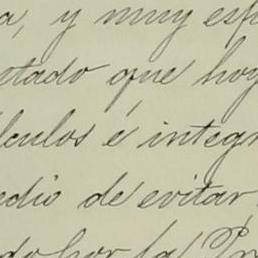 a, y muy esp
etado que hoy
lculos é integr
edio de evitar
do por la Pr